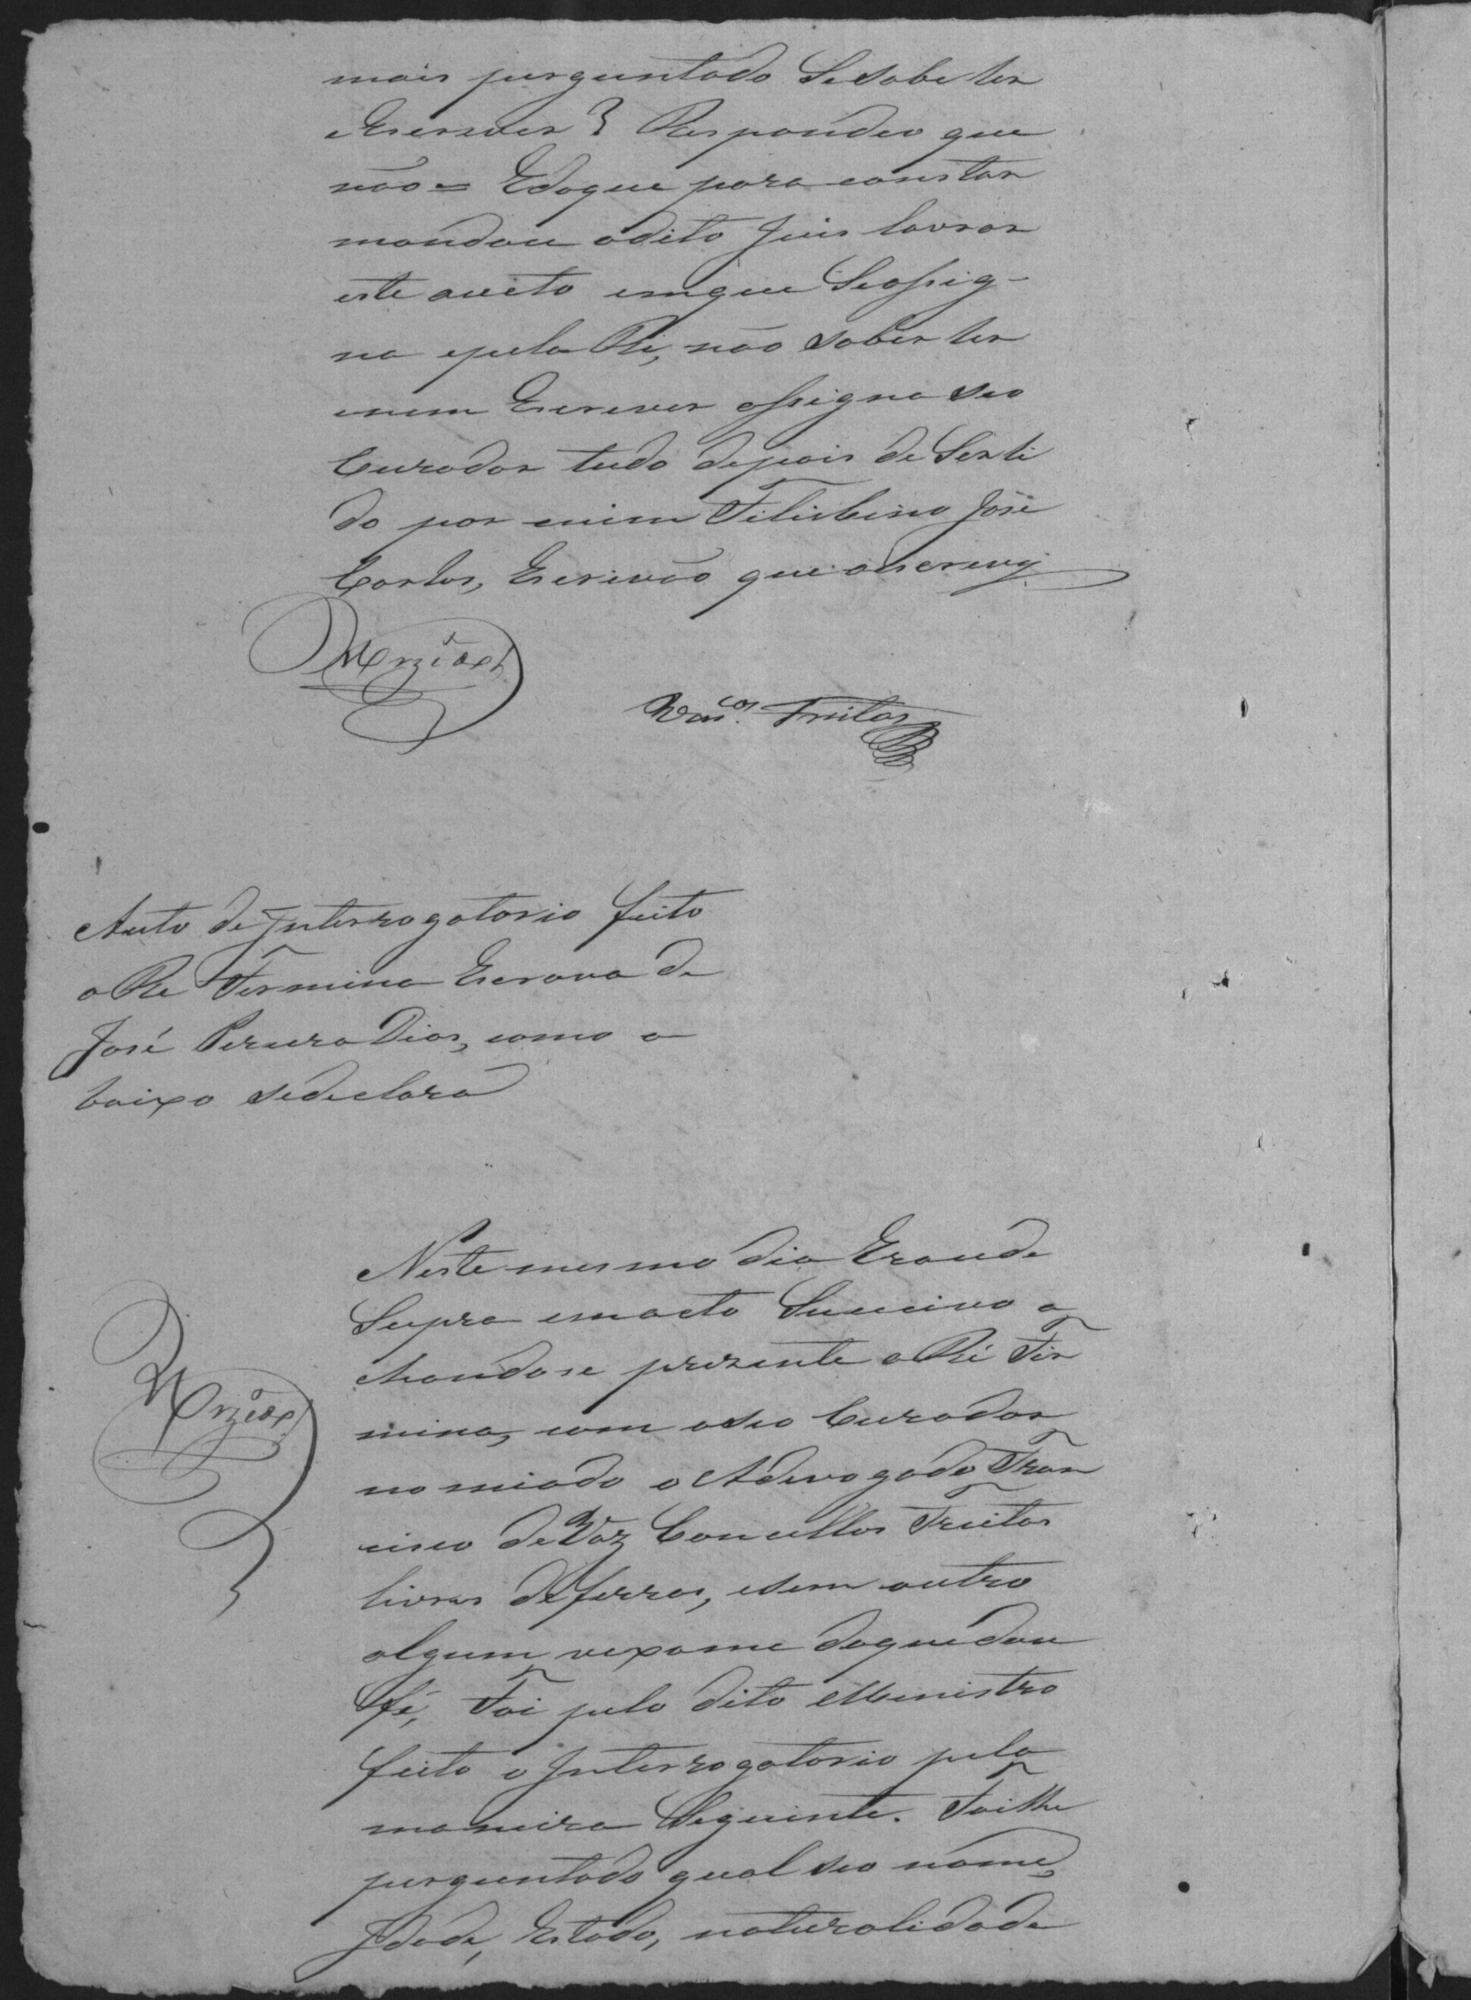 mais perguntado Sesabe ler
eEscrever? Respondeo que
não = Edoque para constar
mandou odito Juis lavrar
este aucto emque Seassig-
na epela Ré, não saber ler
enem Escrever assigna seo
Curador tudo depois de Serli
do por mim Felisbino José
Carlos, Escrivão que oescrevy
Vas.cos Freitas
Auto de Interrogatorio feito
a Ré Firmina Escrava de
José Pereira Dias, como a
baixo sedeclara
Neste mesmo dia Eraude
Supra emacto Sucecivo a
chandose prezente a Ré Fir
mina, com oseo Curador
nomiado o Adevogado Fran
cisco de Vaz Concellos Freitas
livres deferros, esem outro
algum vexame doquedou
fé, Foi pelo dito Menistro
feito o Interrogatorio pela
maneira Siguinte. Foilhe
perguntado qual seo nome,
Idade, Estado, naturalidade